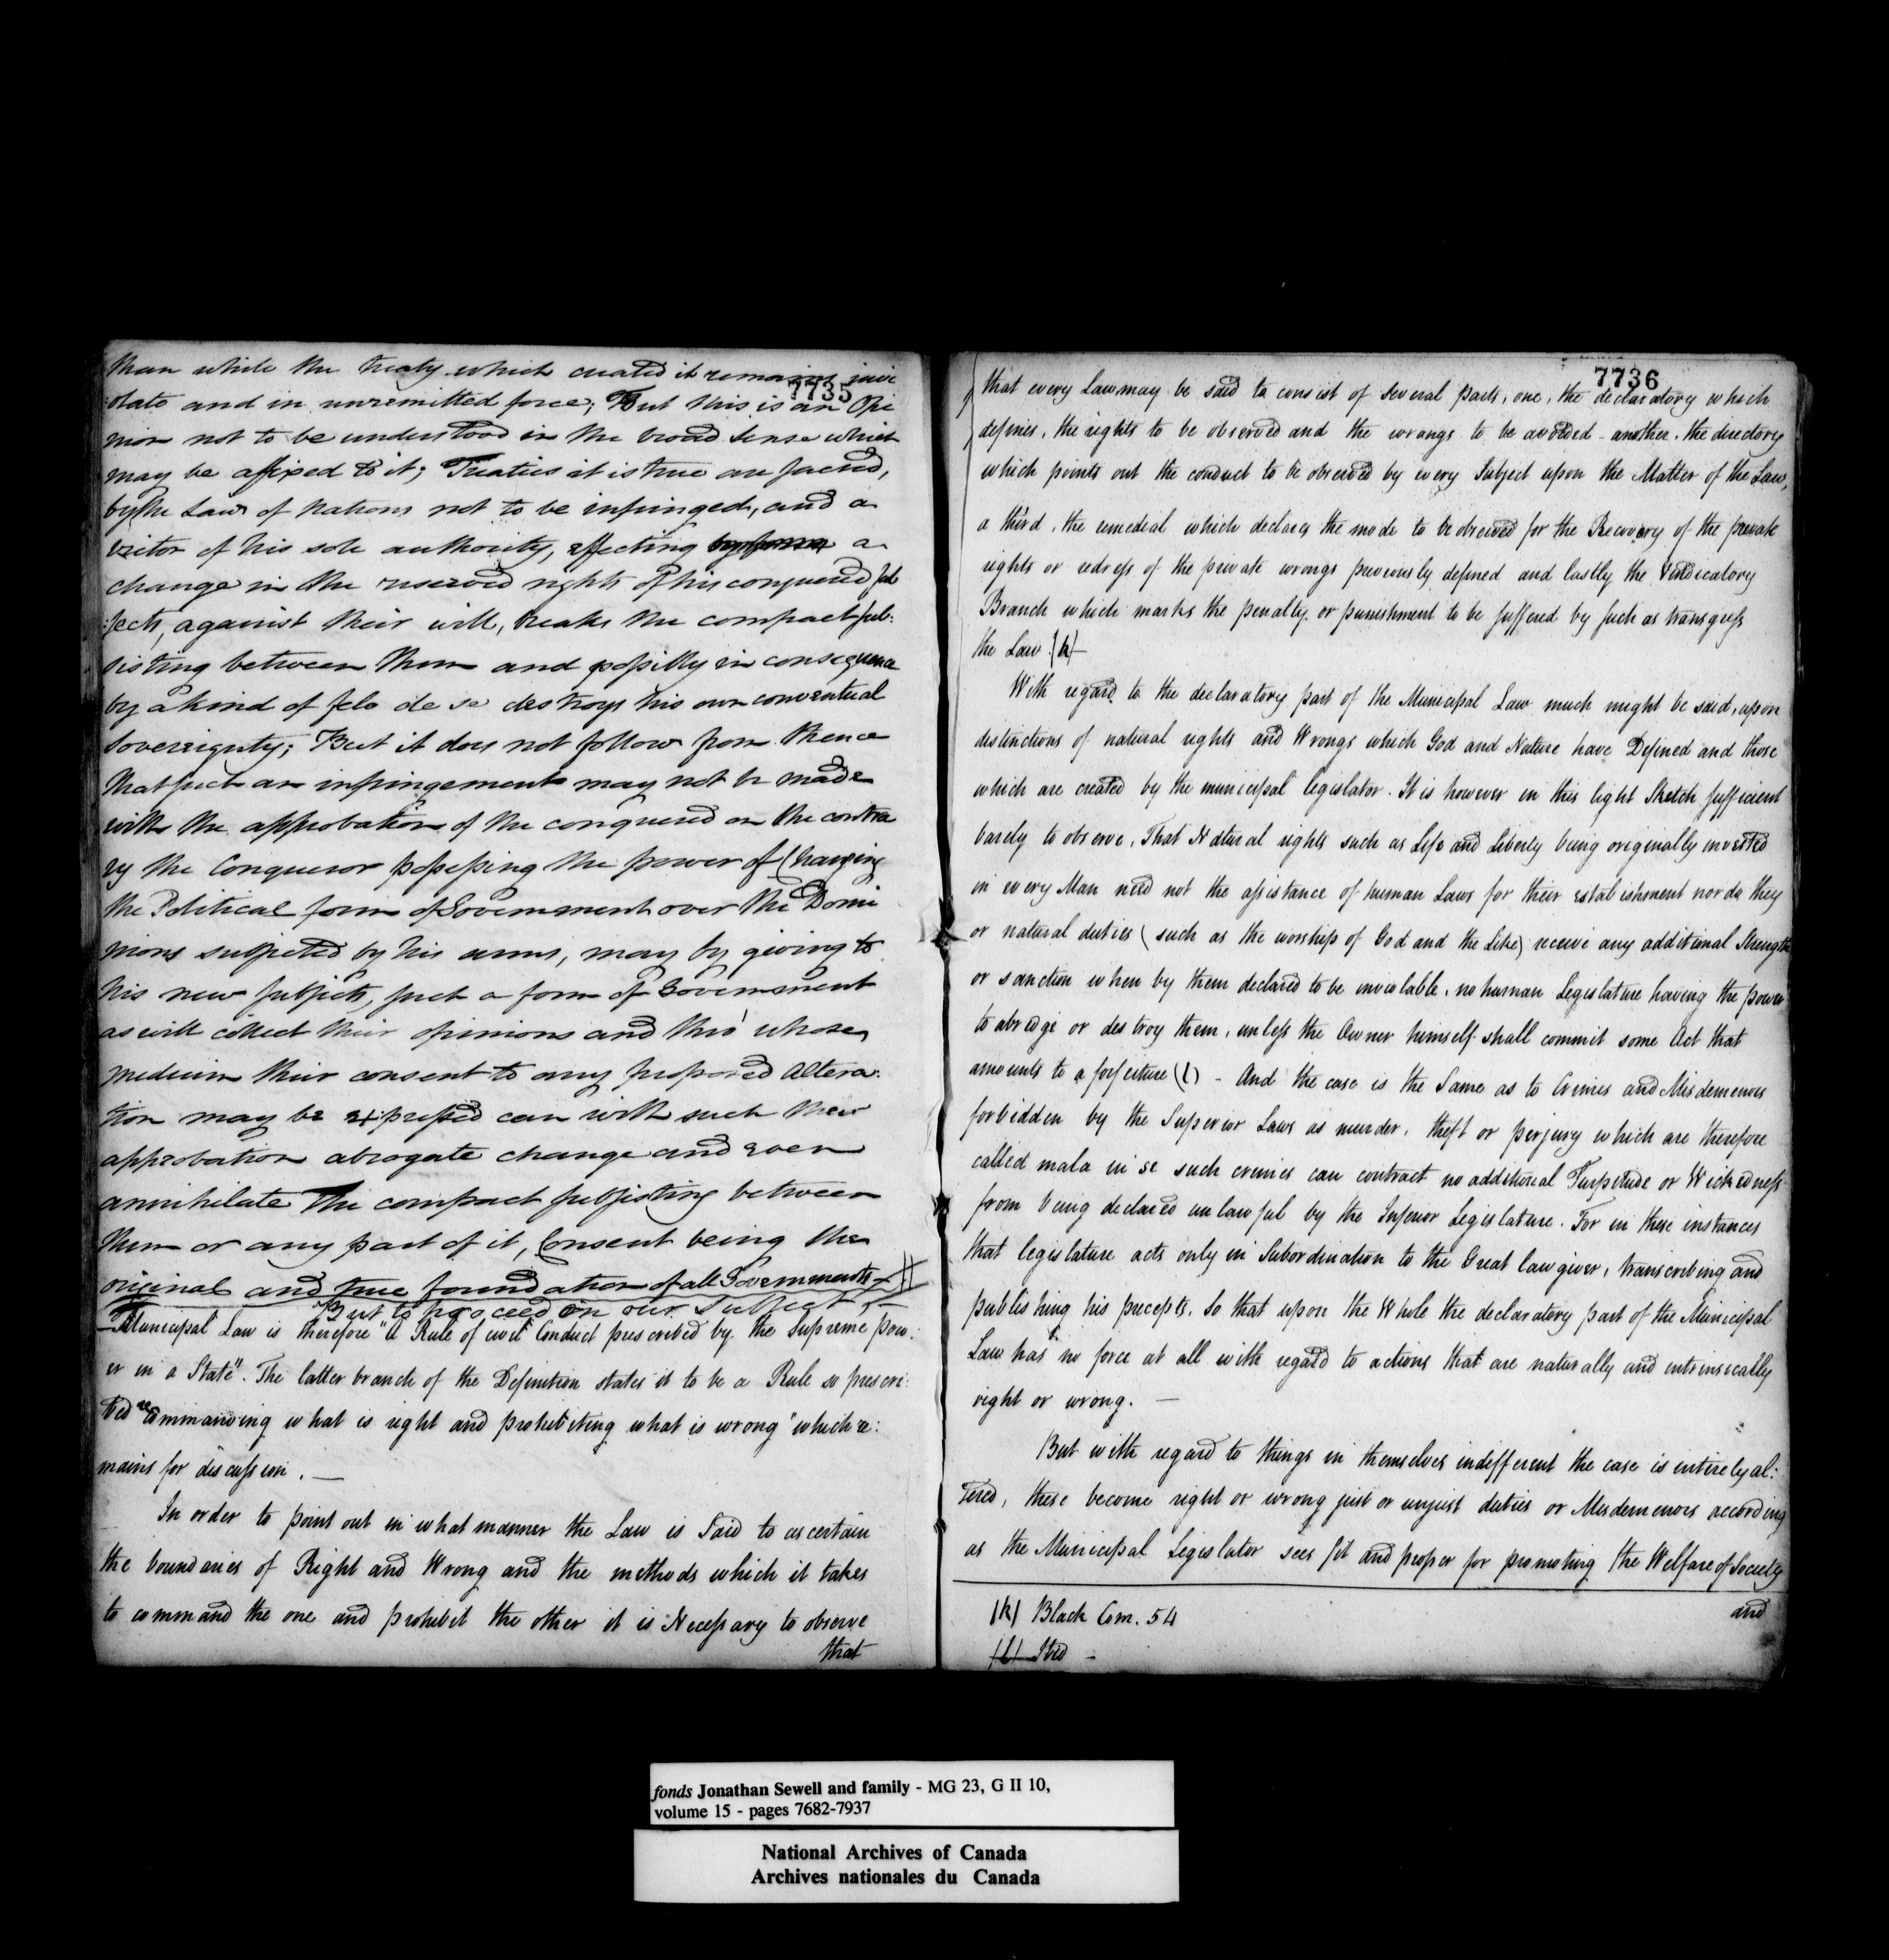 7735
than while the treaty which created it remains invi
:olate and in unremitted force; But this is an Opi
nion not to be understood in the broad Sense which
may be affixed to it; Treaties it is true are sacred,
by the Laws of Nations not to be infringed, and a
victor of his sole authority, effecting a
change in the reserved rights of his conquered sub
:jects, against their will, breaks the compact sub:
sisting between them and possibly in consequence
by a kind of felo de se destroys his own conventual
Sovereignty; But it does not follow from thence
that such an infringement may not be made
with the approbation of the conquered on the contra
ry the Conqueror possessing the power of Changing
the Political form of Government over the Domi
nions subjected by his arms, may by giving to
his new subjects, such a form of Government
as will collect their opinions and thro' whose
medium their consent to any proposed altera:
tion may be expressed can with such their
approbation abrogate change and even
annihilate the compact subsisting between
them or any part of it, Consent being the
original and true foundation of all Governments
But to proceed on our Subject
Municipal Law is therefore "A Rule of civil Conduct prescribed by the Supreme pow:
er in a State". The latter branch of the Definition states it to be a Rule so prescri:
bed "commanding what is right and prohibiting what is wrong" which re:
mains for discussion. —
In order to point out in what manner the Law is Said to ascertain
the boundaries of Right and Wrong and the methods which it takes
to command the one and prohibit the other it is Necessary to observe
that
7736
that every Law may be said to consist of several parts, one, the declaratory which
defines, the rights to be observed and the wrongs to be avoided - another, the directory
which points out the conduct to be observed by every Subject upon the Matter of the Law,
a third, the remedial which declares the mode to be observed for the Recovery of the private
rights or redress of the private wrongs previously defined and lastly the Vindicatory
Branch which marks the penalty or punishment to be suffered by such as transgress
the Law (k)—
With regard to the declaratory part of the Municipal Law much might be said, upon
distinctions of natural rights and Wrongs which God and Nature have Defined and those
which are created by the municipal legislator. It is however in this light Sketch sufficient
barely to observe, That Natural rights such as Life and Liberty being originally invested
in every Man need not the assistance of human Laws for their establishment nor do they
or natural duties (such as the worship of God and the like) receive any additional Strength
or sanction when by them declared to be inviolable, no human Legislature having the power
to abridge or destroy them, unless the Owner himself shall commit some Act that
amounts to a forfeiture (l) - And the case is the Same as to Crimes and Misdemenors
forbidden by the Superior Laws as murder, theft or perjury which are therefore
called mala in se such crimes can contract no additional Turpitude or Wickedness
from being declared unlawful by the Inferior Legislature. For in these instances
that legislature acts only in Subordination to the Great lawgiver, transcribing and
publishing his precepts. So that upon the Whole the declaratory part of the Municipal
Law has no force at all with regard to actions that are naturally and intrinsically
right or wrong. —
But with regard to things in themselves indifferent the case is entirely al:
tered, these become right or wrong just or unjust duties or Misdemenors according
as the Municipal Legislator sees fit and proper for promoting the Welfare of Society
and
(k) Black Com. 54
(l) Ibid -
fonds Jonathan Sewell and family - MG 23, G II 10,
volume 15 - pages 7682-7937
National Archives of Canada
Archives nationales du Canada